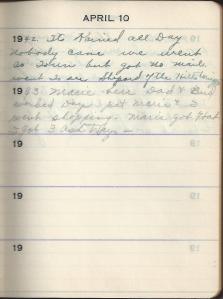 APRIL 10
1942. It Rained all Day
nobody came we went
to Town but got no mail.
went to see Shepard of the Hills
1943. Marie here Dad & Bud
worked Day Marie & I
went shopping. Marie got
I got 3
19
19
19